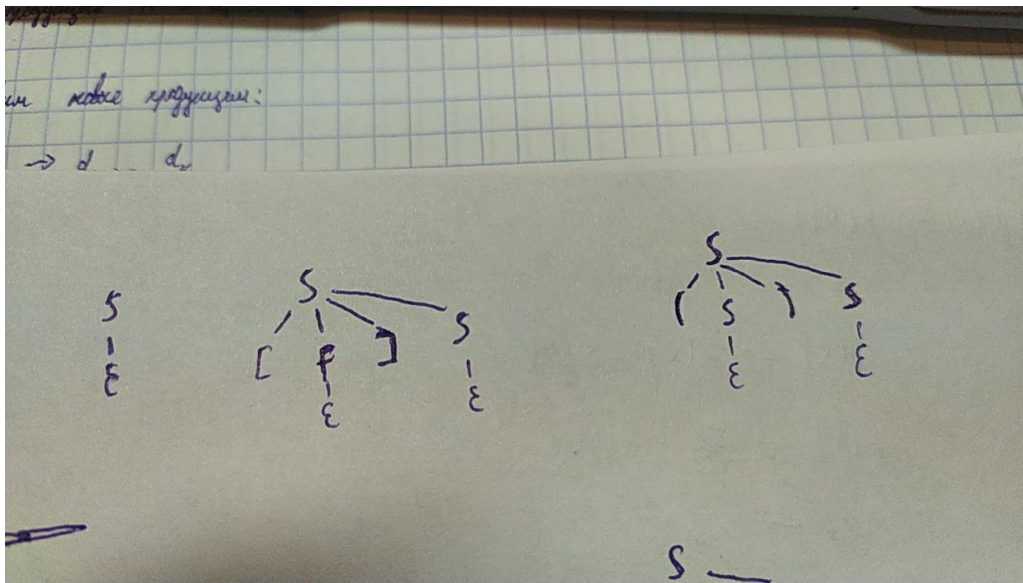 новые продукции:
→ d ... d
S S
S ( S ) S
[ F ] S ε ε
ε ε ε
S